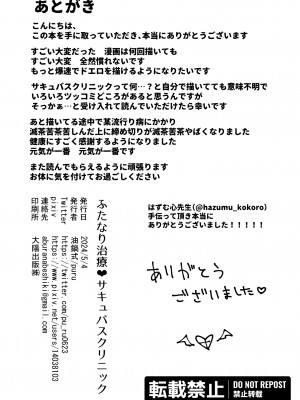 あとがき
こんにちは、
この本を手に取っていただき、本当にありがとうございます
すごい大変だった　漫画は何回描いても
すごい大変　全然慣れないです
もっと爆速でドエロを描けるようになりたいです
サキュバスクリニックって何…？と自分で描いてても意味不明で
いろいろツッコミどころがあると思うんですが
そっかぁ…と受け入れて読んでいただけたら幸いです
あと描いてる途中で某流行り病にかかり
滅茶苦茶苦しんだ上に締め切りが滅茶苦茶やばくなりました
健康にすごく感謝するようになりました
元気が一番　元気が一番です
また読んでもらえるように頑張ります
お体に気を付けてお過ごしください
はずむ心先生(@hazumu_kokoro)
手伝って頂き本当に
ありがとうございました！！！！！
ありがとう
ございました♡
ふたなり治療♥サキュバスクリニック
発行日　2024/5/4
発行者　油鍋式/puru
Twitter　https://twitter.com/pu_ru0623
pixiv　https://www.pixiv.net/users/14038103
連絡先　aburanabeshiki@gmail.com
印刷所　大陽出版㈱
転載禁止
DO NOT REPOST
禁止转载